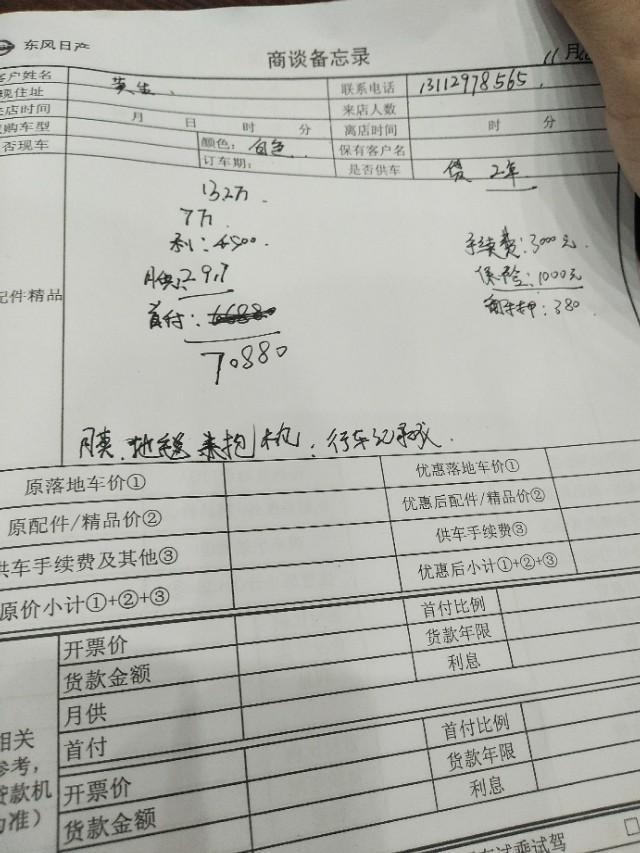 东风日产
商谈备忘录
11月
客户姓名 黄生 联系电话 13112978565
现住址 来店人数
来店时间 月 日 时 分 离店时间 时 分
购车型 颜色：白色 保有客户名
否现车 订车期： 是否供车 贷 2年
13.2万
7万
利：4500
手续费：3000元
月供：2917
保险：1000元
首付：
380
70880
配件精品
膜 地毯 行车记录
原落地车价① 优惠落地车价①
原配件/精品价② 优惠后配件/精品价②
供车手续费及其他③ 供车手续费③
原价小计①+②+③ 优惠后小计①+②+③
开票价 首付比例
货款金额 货款年限
月供 利息
首付
相关
参考，
贷款机
为准）
开票价 首付比例
货款金额 货款年限
利息
试乘试驾